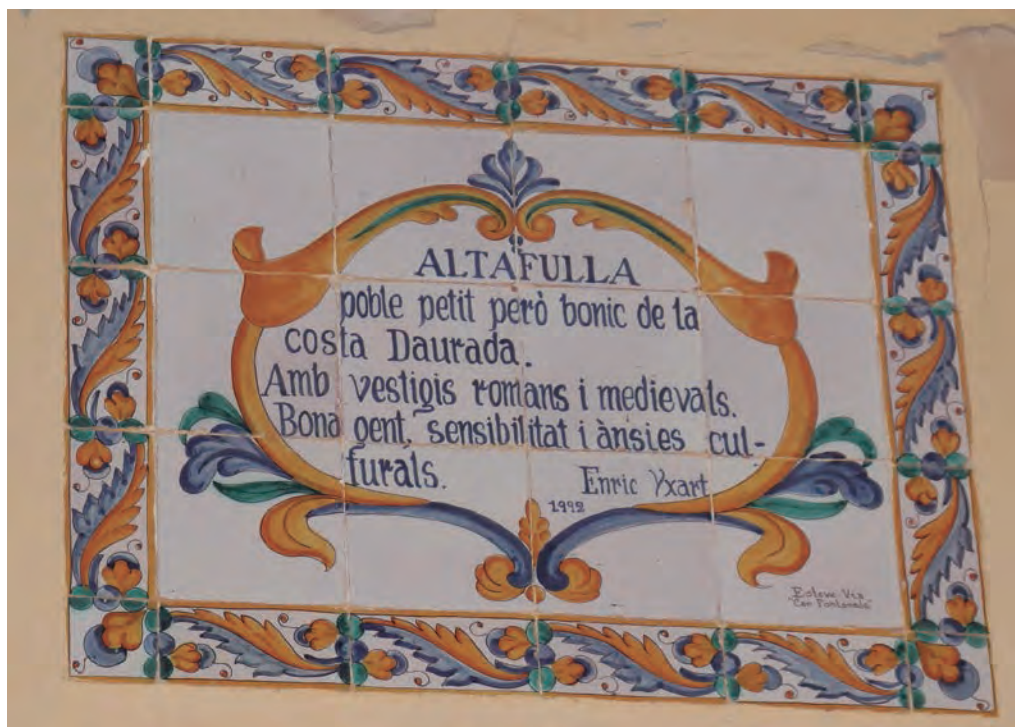 ALTAFULLA
poble petit però bonic de la
costa Daurada.
Amb vestigis romans i medievals.
Bona gent, sensibilitat i ànsies cul-
turals.
Enric Yxart
1992
Esteve
"Can Fontanals"